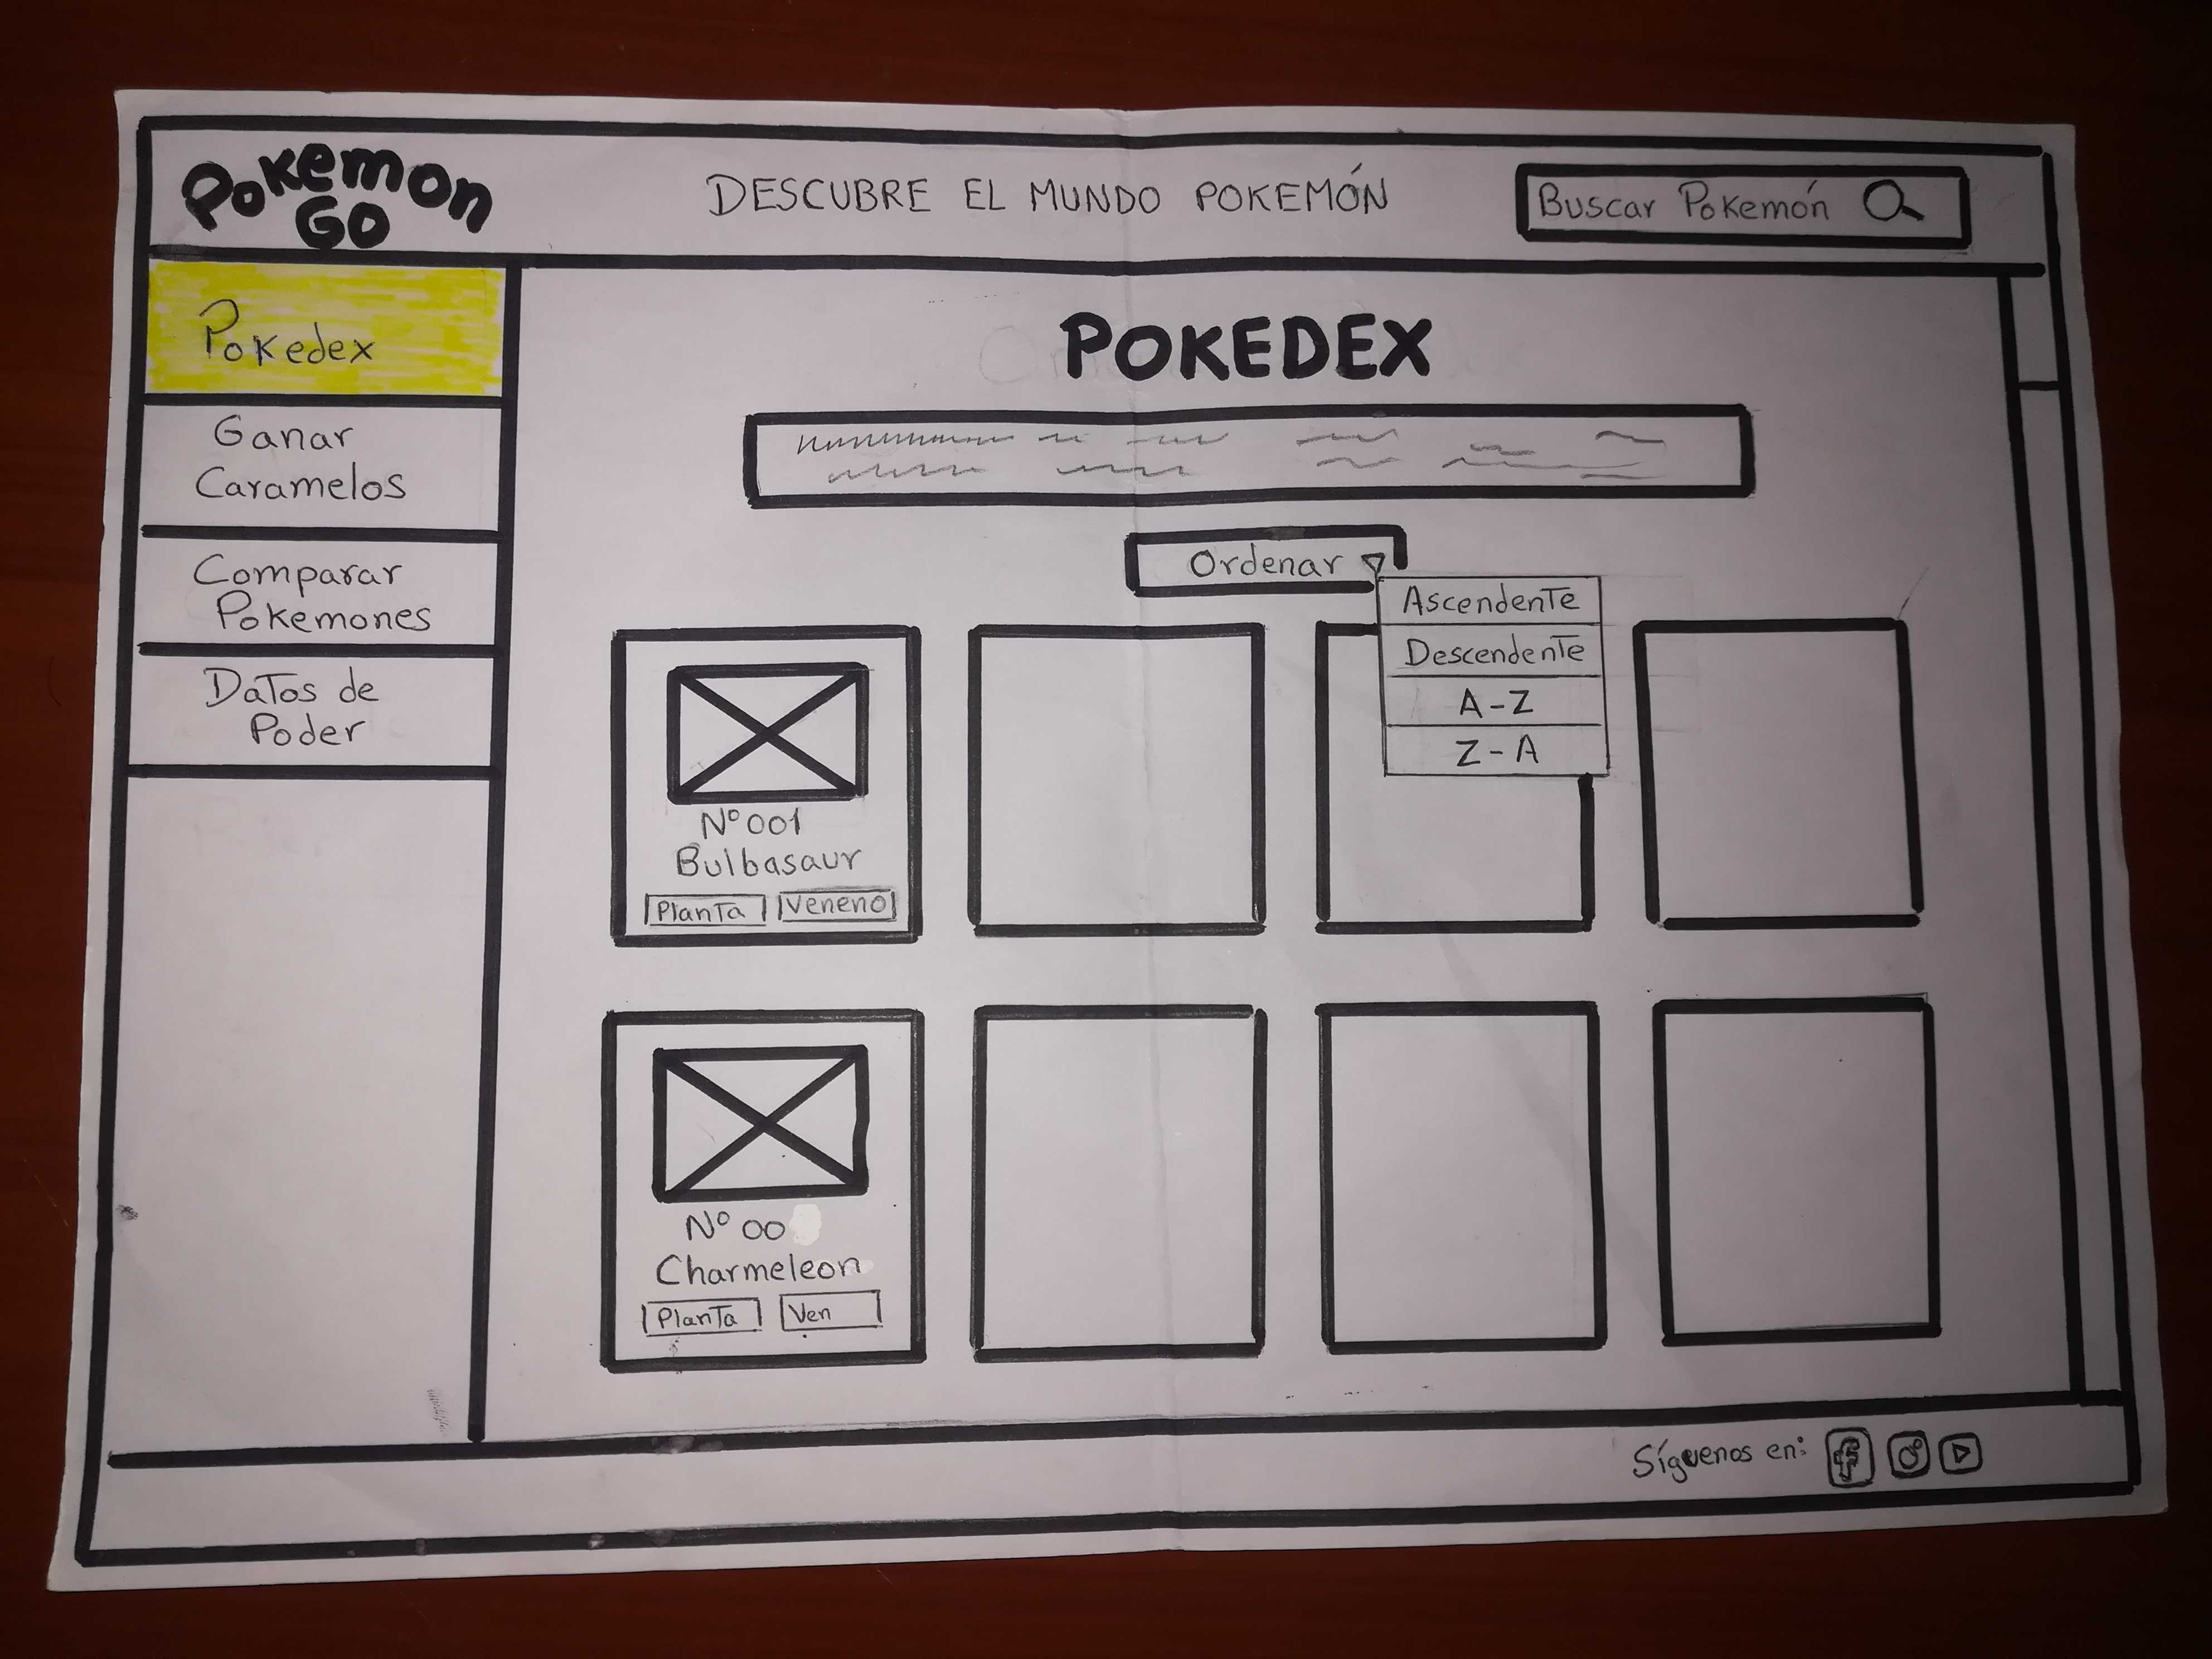 Pokemon
GO
DESCUBRE EL MUNDO POKEMÓN
Buscar Pokemón
Pokedex
Ganar
Caramelos
Comparar
Pokemones
Datos de
Poder
POKEDEX
Ordenar
Ascendente
Descendente
A-Z
Z-A
Nº 001
Bulbasaur
Planta Veneno
Nº 00
Charmeleon
Planta Ven
Síguenos en: